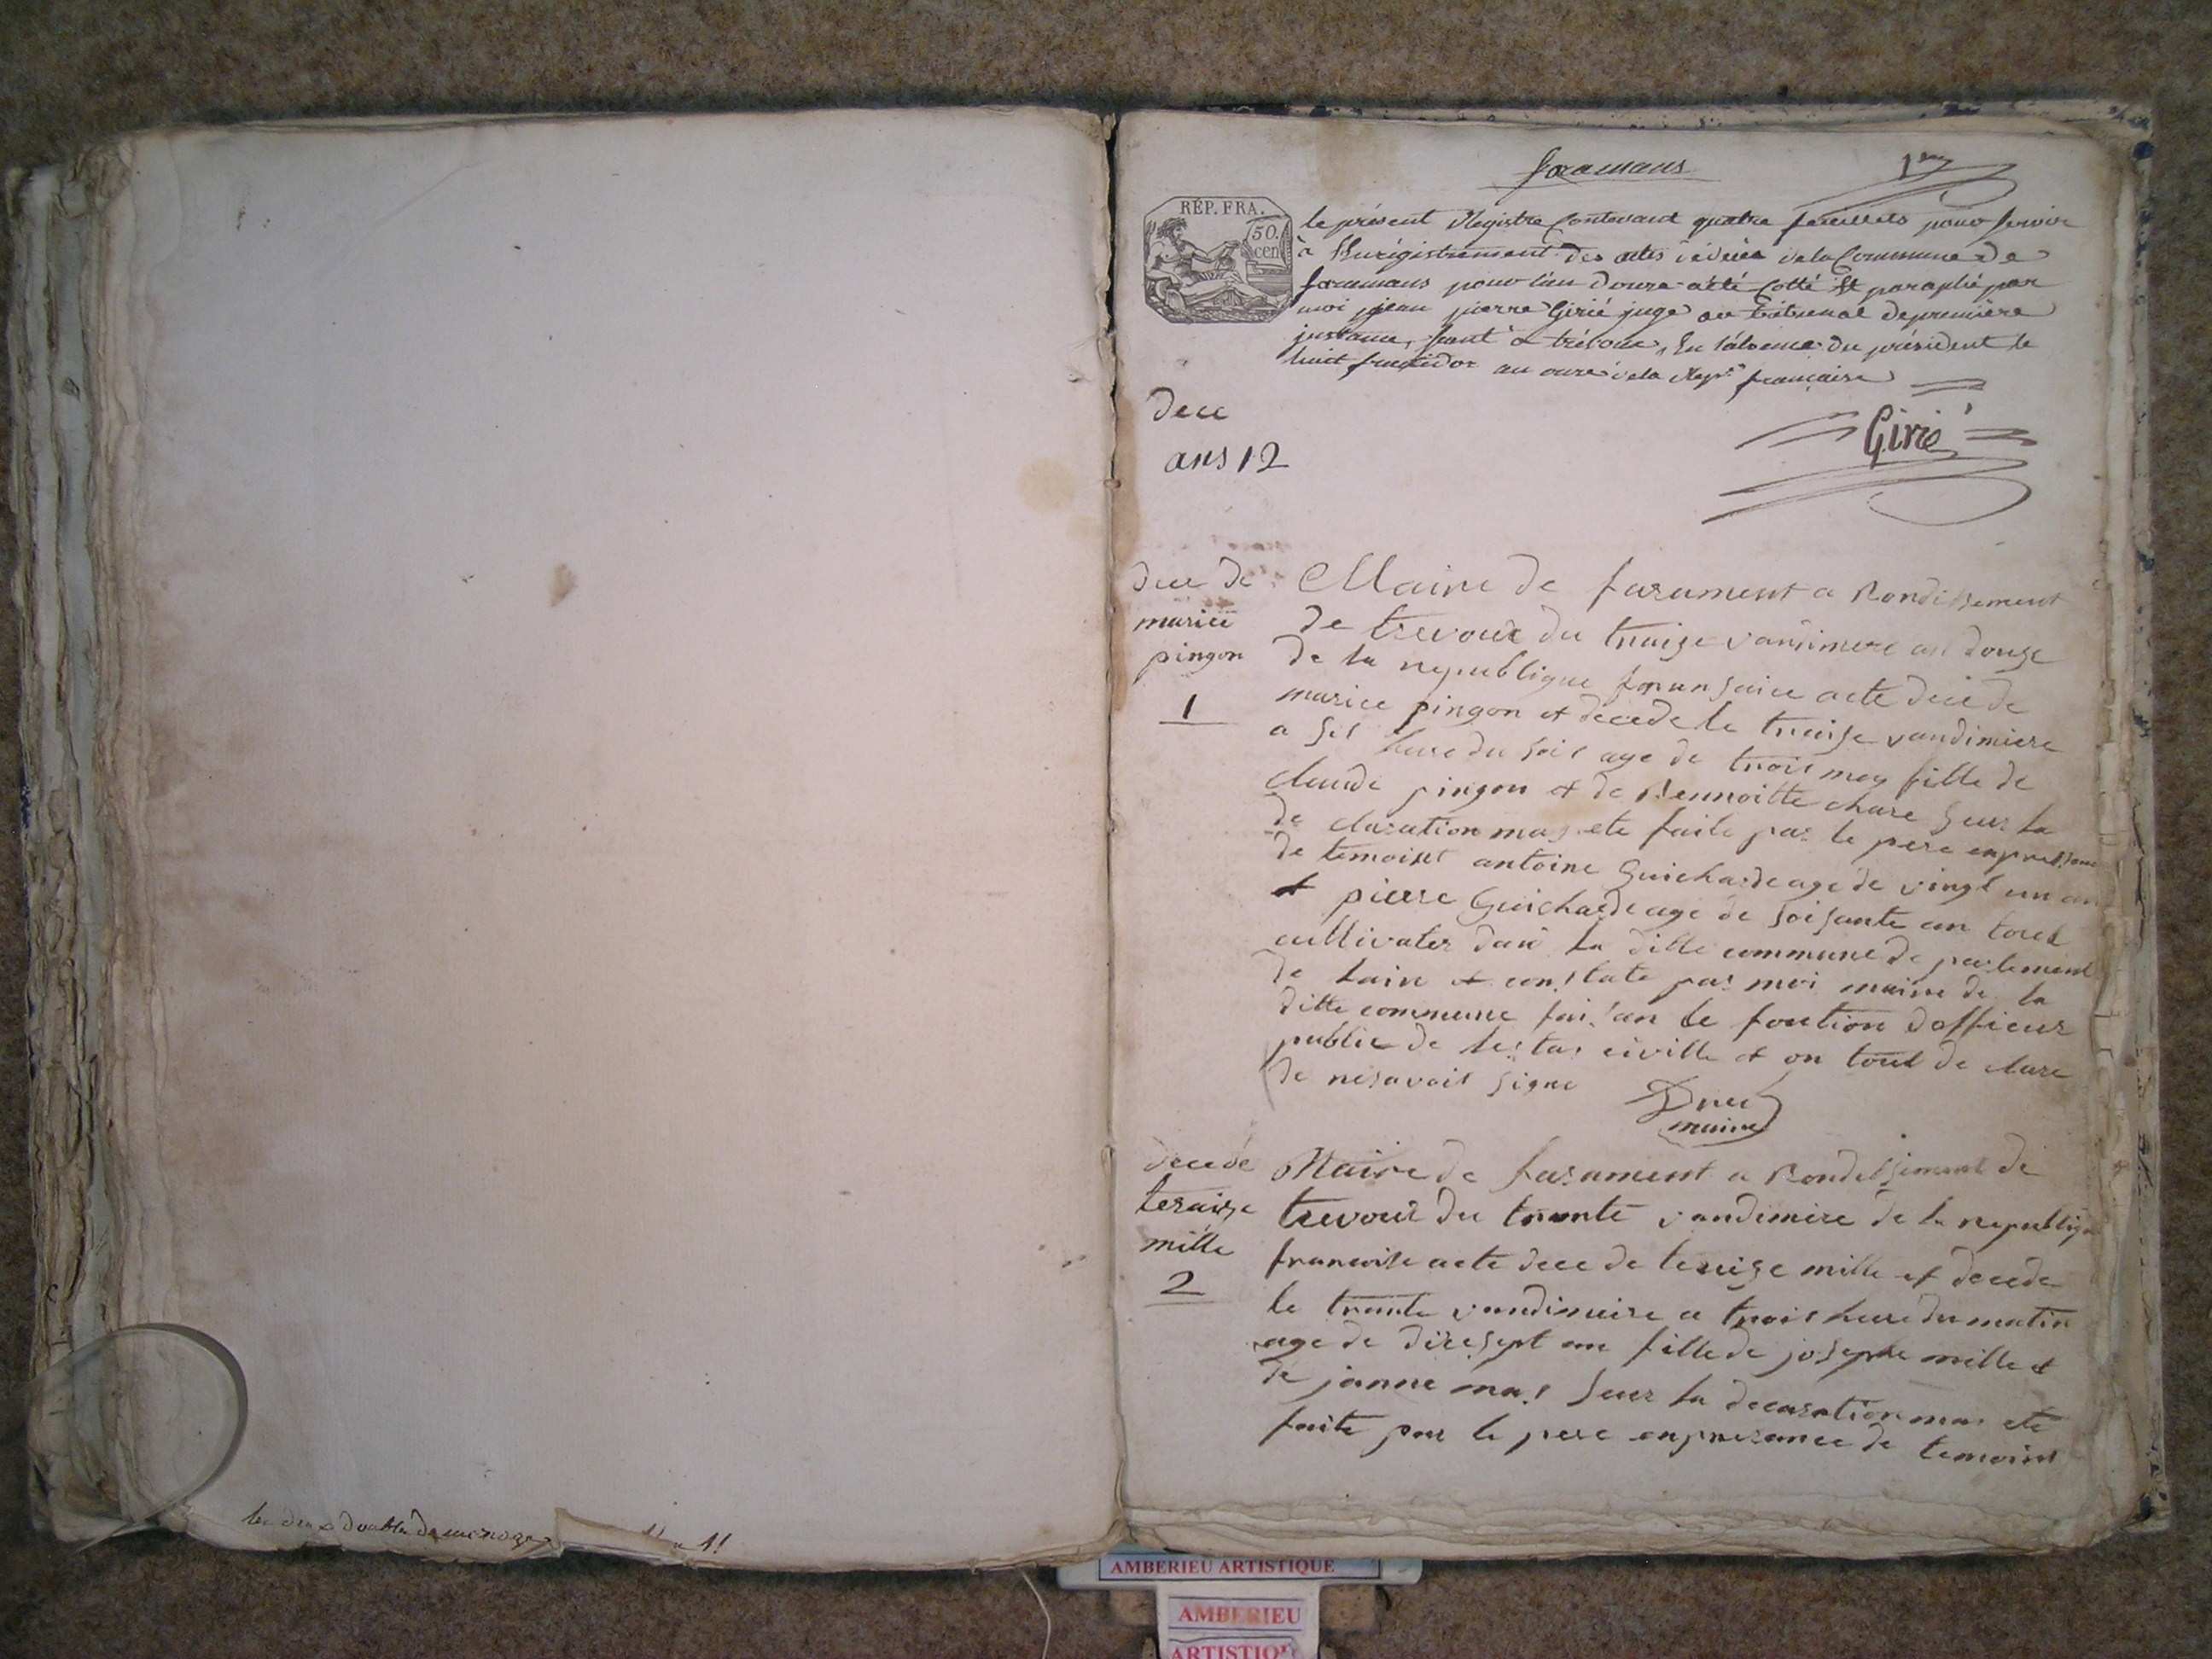 faramans
1er
RÉP. FRA.
50.
cen
le présent Registre Contenant quatre feuillets pour servir
à l'Enregistrement des actes de décès de la Commune de
faramans pour l'an Douze a été Cotté Et paraphé par
moi jean pierre Girié juge au tribunal de première
instance, séant à trévoux, En l'absence du président le
huit fructidor an onze de la Repe française
Girié
Dece
ans 12
dece de
marice
pingon
1
Maire de farament a Rondissement
de trevoux du traize vandimere an douze
de la republique fransaice acte dece de
marice pingon et decede le traise vandimiere
a sis heure du soir age de trois moy fille de
claude pingon et de Bennoitte chare seur la
de claration mas ete faite par le pere enpresance
de temoint antoine Guicharde age de vingt un an
et pierre Guicharde age de soisante an tout
cultivater dans la ditte commune de partement
de lain et constate par moi maire de la
ditte commune faisan le fontion dofficier
public de lestas civille et on tout de clare
de nesavoir signe
Druc
maire
decede
teraize
mille
2
Maire de farament a Rondissement de
trevoux du trante vandimire de la republique
francoise acte dece de teraize mille et decede
le trante vandimiere a trois heure du matin
age de dixesept an fille de josephe mille et
de janne mas seur la decaration mas ete
faite par le pere enpresance de temoint
les deux double de menage
11
AMBERIEU ARTISTIQUE
AMBERIEU
ARTISTIQUE